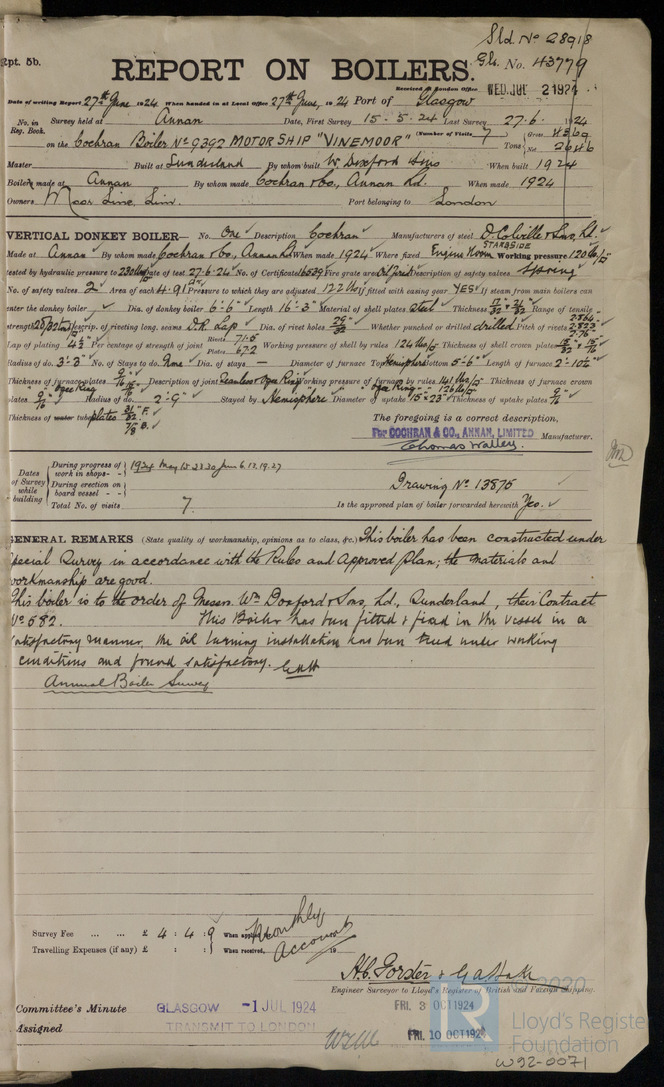 Sld. No 28918
Rpt. 5b.
Gls. No. 43779
REPORT ON BOILERS.
Received at London Office WED. JUL 2 1924
Date of writing Report 27th June 1924 When handed in at Local Office 27th June, 1924 Port of Glasgow
No. in Survey held at Annan Date, First Survey 15-5-24 Last Survey 27-6-1924
Reg. Book. (Number of Visits 7) Gross 4369
on the Cochran Boiler No 9392 MOTOR SHIP "VINEMOOR" Tons Net 2646
Master Built at Sunderland By whom built W. Doxford & Sons When built 1924
Boilers made at Annan By whom made Cochran & Co., Annan Ld. When made 1924
Owners Moor Line, Lim. Port belonging to London
VERTICAL DONKEY BOILER— No. One Description Cochran Manufacturers of steel D. Colville & Sons, Ld.
STARBSIDE
Made at Annan By whom made Cochran & Co., Annan Ld. When made 1924 Where fixed Engine Room Working pressure 120 lbs/□"
tested by hydraulic pressure to 230 lbs Date of test 27-6-24 No. of Certificate 16629 Fire grate area Oil fired Description of safety valves Spring
No. of safety valves 2 Area of each 4.91 Pressure to which they are adjusted 122 lbs If fitted with easing gear YES If steam from main boilers can
enter the donkey boiler Dia. of donkey boiler 6'-6" Length 16'-3" Material of shell plates Steel Thickness 17/32 & 21/32 Range of tensile
strength 28/32 tons Descrip. of riveting long. seams D.R. Lap Dia. of rivet holes 29/32 Whether punched or drilled drilled Pitch of rivets
Lap of plating 4½ Per centage of strength of joint Rivets 71.5 Plates 67.2 Working pressure of shell by rules 124 lbs/□" Thickness of shell crown plates
Radius of do. 3'-3" No. of Stays to do. None Dia. of stays — Diameter of furnace Top Hemisphere Bottom 5'-6" Length of furnace 2'-10½
Thickness of furnace plates 9/16 Description of joint Seamless Ogee Ring Working pressure of furnace by rules 141 lbs/□" Thickness of furnace crown
plates 9/16 Radius of do. 2'-9" Stayed by Hemisphere Diameter of uptake 15" × 23" Thickness of uptake plates 9/16
Thickness of water tube plates 31/32 F. 7/8 B.
The foregoing is a correct description,
For COCHRAN & CO., ANNAN, LIMITED Manufacturer.
Dates of Survey while building
During progress of work in shops - - 1924 May 15 23 30 June 6.12.19.27
During erection on board vessel - - Drawing No. 13875
Total No. of visits 7. Is the approved plan of boiler forwarded herewith Yes.
GENERAL REMARKS (State quality of workmanship, opinions as to class, &c.) This boiler has been constructed under
Special Survey in accordance with the Rules and Approved Plan; the materials and
workmanship are good.
This boiler is to the order of Messrs. Wm Doxford & Sons, Ld., Sunderland, their Contract
No 582. This Boiler has been fitted & fixed in the vessel in a
satisfactory manner, the oil burning installation has been tried under working
conditions and found satisfactory.
Annual Boiler Survey
Survey Fee ... ... £ 4 : 4 : 9 When applied for Monthly
Travelling Expenses (if any) £ : : When received, Account 19
Engineer Surveyor to Lloyd's Register of British and Foreign Shipping.
Committee's Minute GLASGOW -1 JUL 1924 FRI. 3 OCT 1924
Assigned TRANSMIT TO LONDON FRI. 10 OCT 1924
© 2020
Lloyd's Register
Foundation
W92-0071